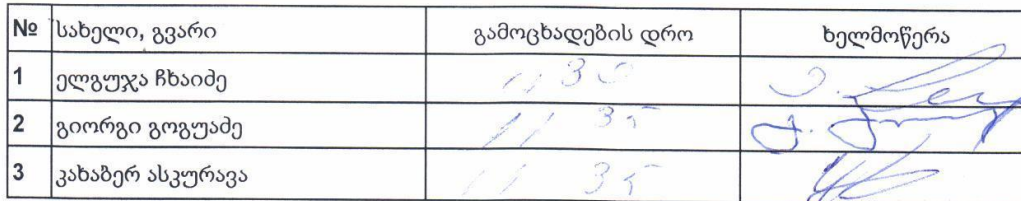 № სახელი, გვარი გამოცხადების დრო ხელმოწერა
1 ელგუჯა ჩხაიძე 11 30
2 გიორგი გოგუაძე 11 35
3 კახაბერ ასკურავა 11 35